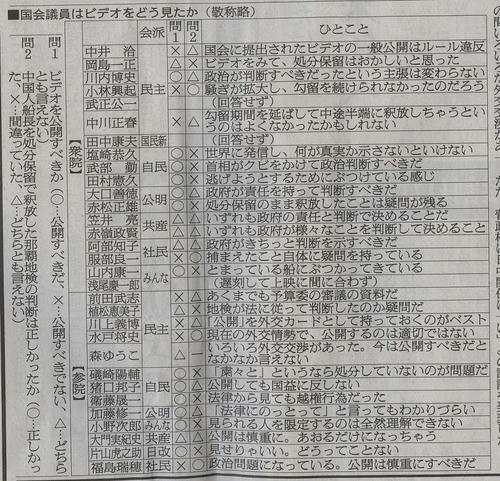 ■国会議員はビデオをどう見たか(敬称略)
会派 問1 問2 ひとこと
【衆院】
中井 洽 民主 国会に提出されたビデオの一般公開はルール違反
岡島一正 ビデオをみて、処分保留はおかしいと思った
川内博史 政治が判断すべきだったという主張は変わらない
小林興起 騒ぎが拡大し、勾留を続けられなかったのだろう
武正公一 (回答せず)
中川正春 勾留期間を延ばして中途半端に釈放しちゃうというのはよくなかったかもしれない
田中康夫 国民新 (回答せず)
塩崎恭久 自民 世界に発信し、何が真実か示さないといけない
武部 勤 首相がクビをかけて政治判断すべきだ
田村憲久 逃げようとするためにぶつけている感じ
大口善徳 公明 政府が責任を持って判断すべきだ
赤松正雄 処分保留のまま釈放したことは疑問が残る
笠井 亮 共産 いずれも政府の責任と判断で決めることだ
赤嶺政賢 いずれも政府が様々なことを判断して決めること
阿部知子 社民 政府がきちっと判断を示すべきだ
服部良一 捕まえたこと自体に疑問を持っている
山内康一 みんな とまっている船にぶつかってきている
浅尾慶一郎 (遅刻して上映に間に合わず)
【参院】
前田武志 民主 あくまでも予算委の審議の資料だ
植松恵美子 地検が法に従って判断したのか疑問だ
川上義博 「公開」を外交カードとして持っておくのがベスト
水戸将史 現在の外交情勢で、公開するのは適切ではない
森ゆうこ いろいろ外交渉があった。今は公開すべきだとなかなか言えない
磯崎陽輔 自民 「粛々と」というなら処分していないのが問題だ
猪口邦子 公開しても国益に反しない
衛藤晟一 法律から見ても越権行為だった
加藤修一 公明 「法律にのっとって」と言ってもわかりづらい
小野次郎 みんな 見られる人を限定するのは全然理解できない
大門実紀史 共産 公開は慎重に。あおるだけになっちゃう
片山虎之助 日改 見せりゃいい。どうってことない
福島瑞穂 社民 政治問題になっている。公開は慎重にすべきだ
問1 ビデオを公開すべきか(○…公開すべきだ、×…公開すべきでない、△…どちらとも言えない)
問2 中国人船長を処分保留で釈放した那覇地検の判断は正しかったか(○…正しかった、×…間違っていた、△…どちらとも言えない)